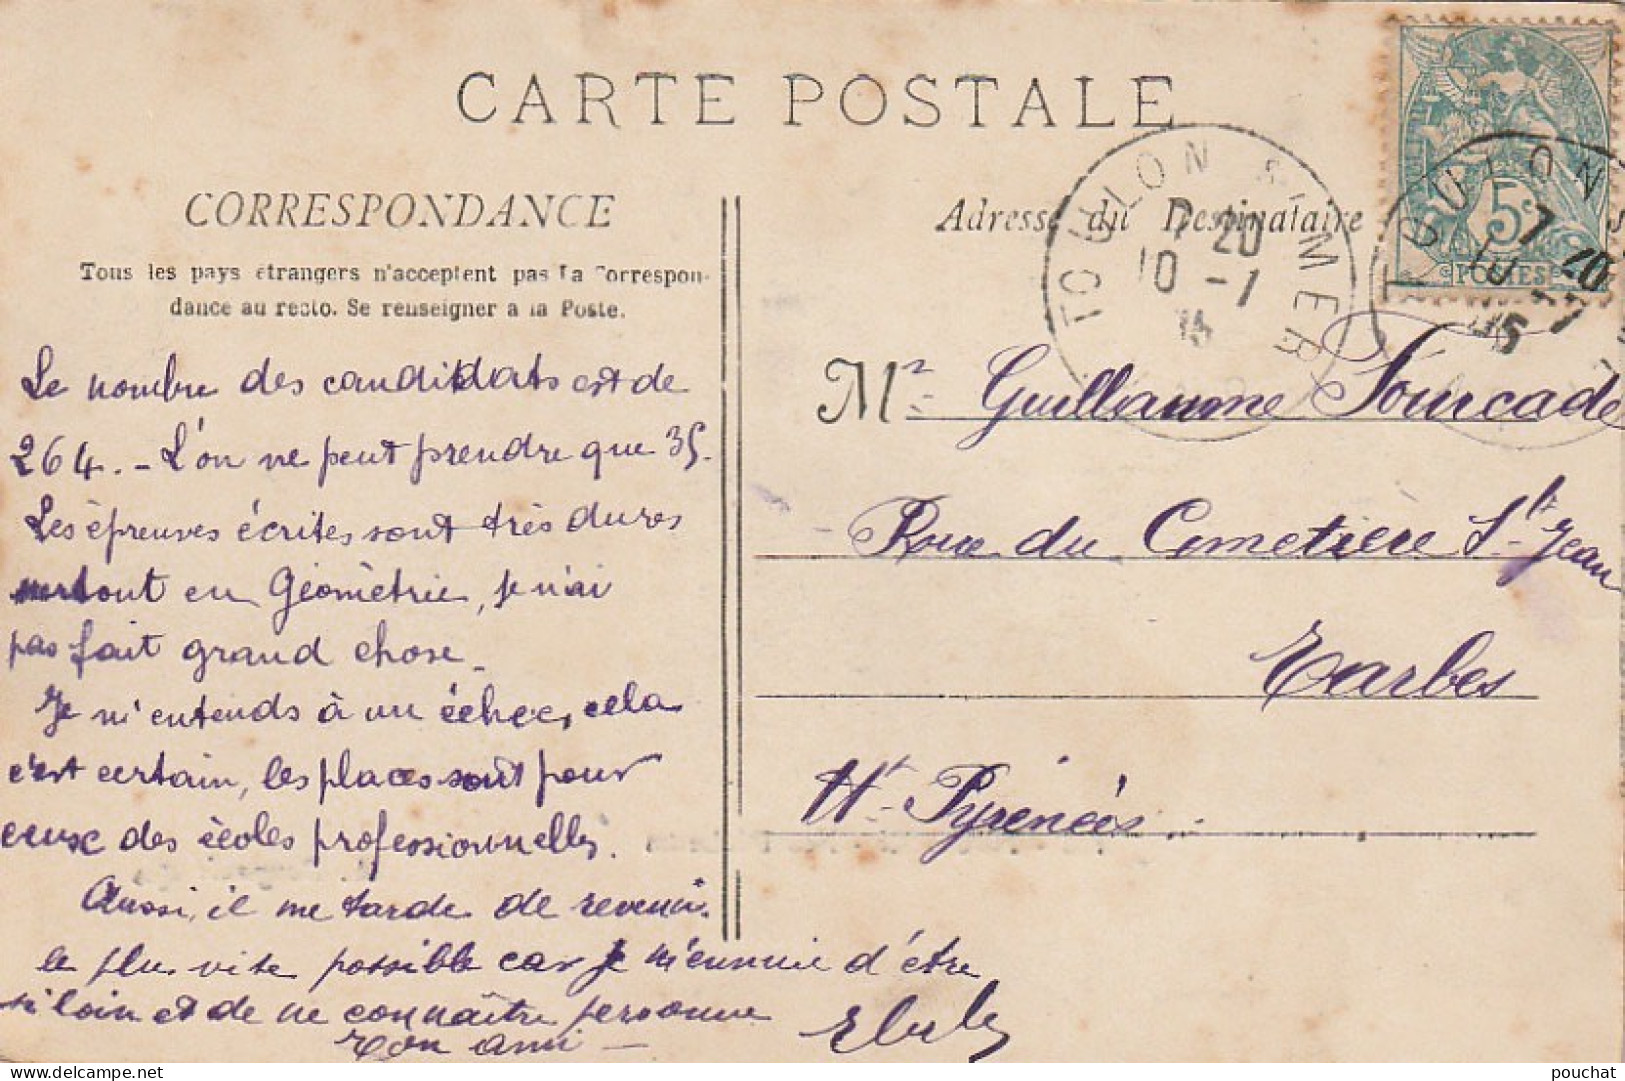 CARTE POSTALE
CORRESPONDANCE
Tous les pays étrangers n'acceptent pas la Correspon-
dance au recto. Se renseigner a la Poste.
Le nombre des candidats est de
264. - L'on ne peut prendre que 35.
Les épreuves écrites sont très dures
surtout en Géométrie, je n'ai
pas fait grand chose.
Je m'entends à un échec, cela
c'est certain, les places sont pour
ceux des écoles professionnelles.
Aussi, il me tarde de revenir
le plus vite possible car je m'ennuie d'être
si loin et de ne connaître personne
Ton ami -
Adresse du Destinataire
TOULON S MER
7 20
10 - 1
5c
POSTES
TOULON S
7 20
10 - 1
05
Mr Guillaume Fourcade
Rue du Cimetière St-Jean
Tarbes
Htes-Pyrénées
pouchat